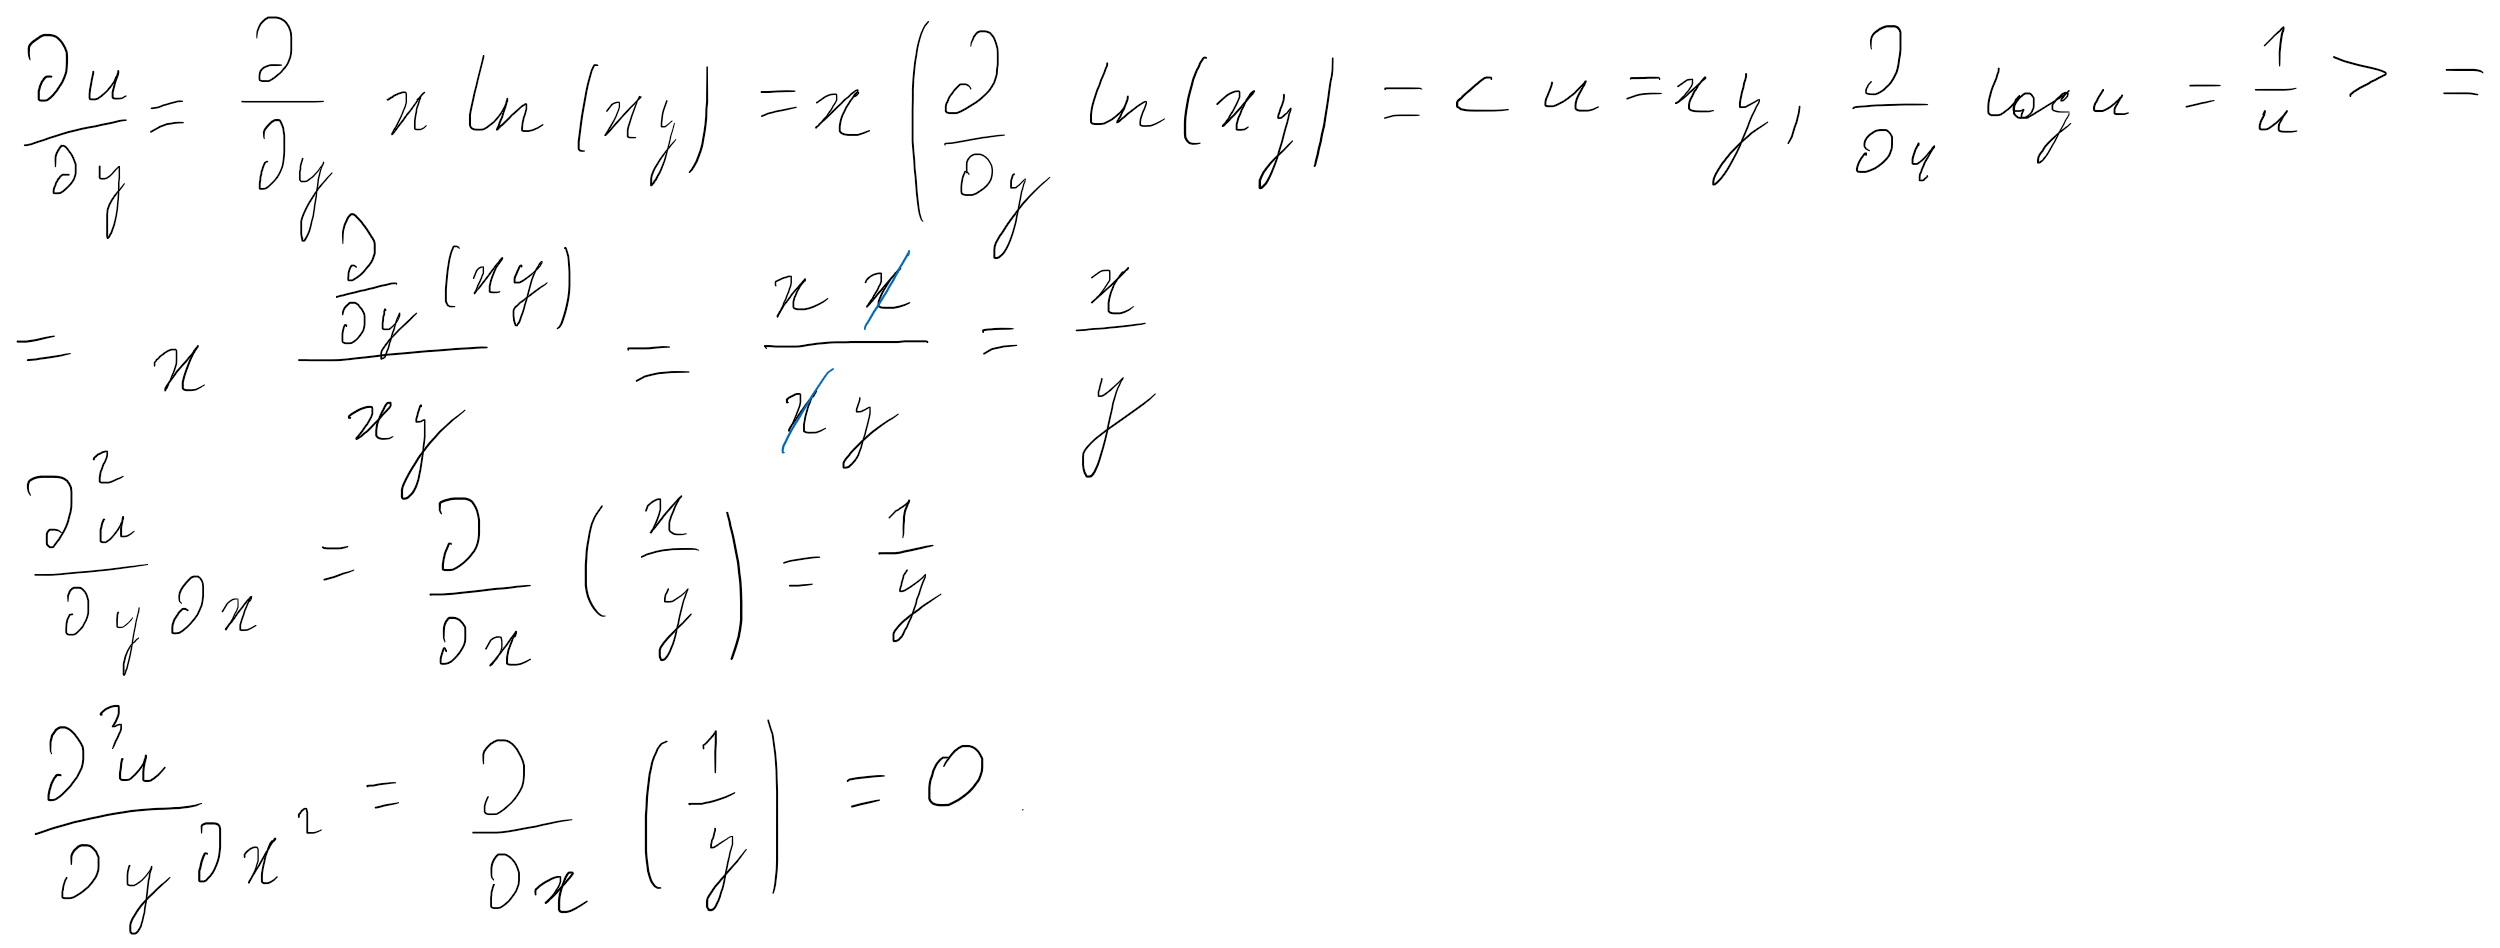 ∂u/∂y = ∂/∂y x ln(xy) = x (∂/∂y ln(xy) = < u = xy, ∂/∂u log u = 1/u > =
= x (∂/∂y (xy))/(xy) = (x x)/(x y) = x/y
∂²u/∂y∂x = ∂/∂x (x/y) = 1/y
∂³u/∂y∂x² = ∂/∂x (1/y) = 0.